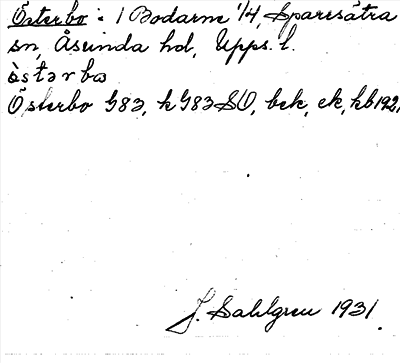 Österbo: i Bodarne 1/4, Sparrsätra
sn, Åsunda hd, Upps. l.
östərbo
Österbo G83, kG83SO, bek, ek, kb1921,
J. Sahlgren 1931.